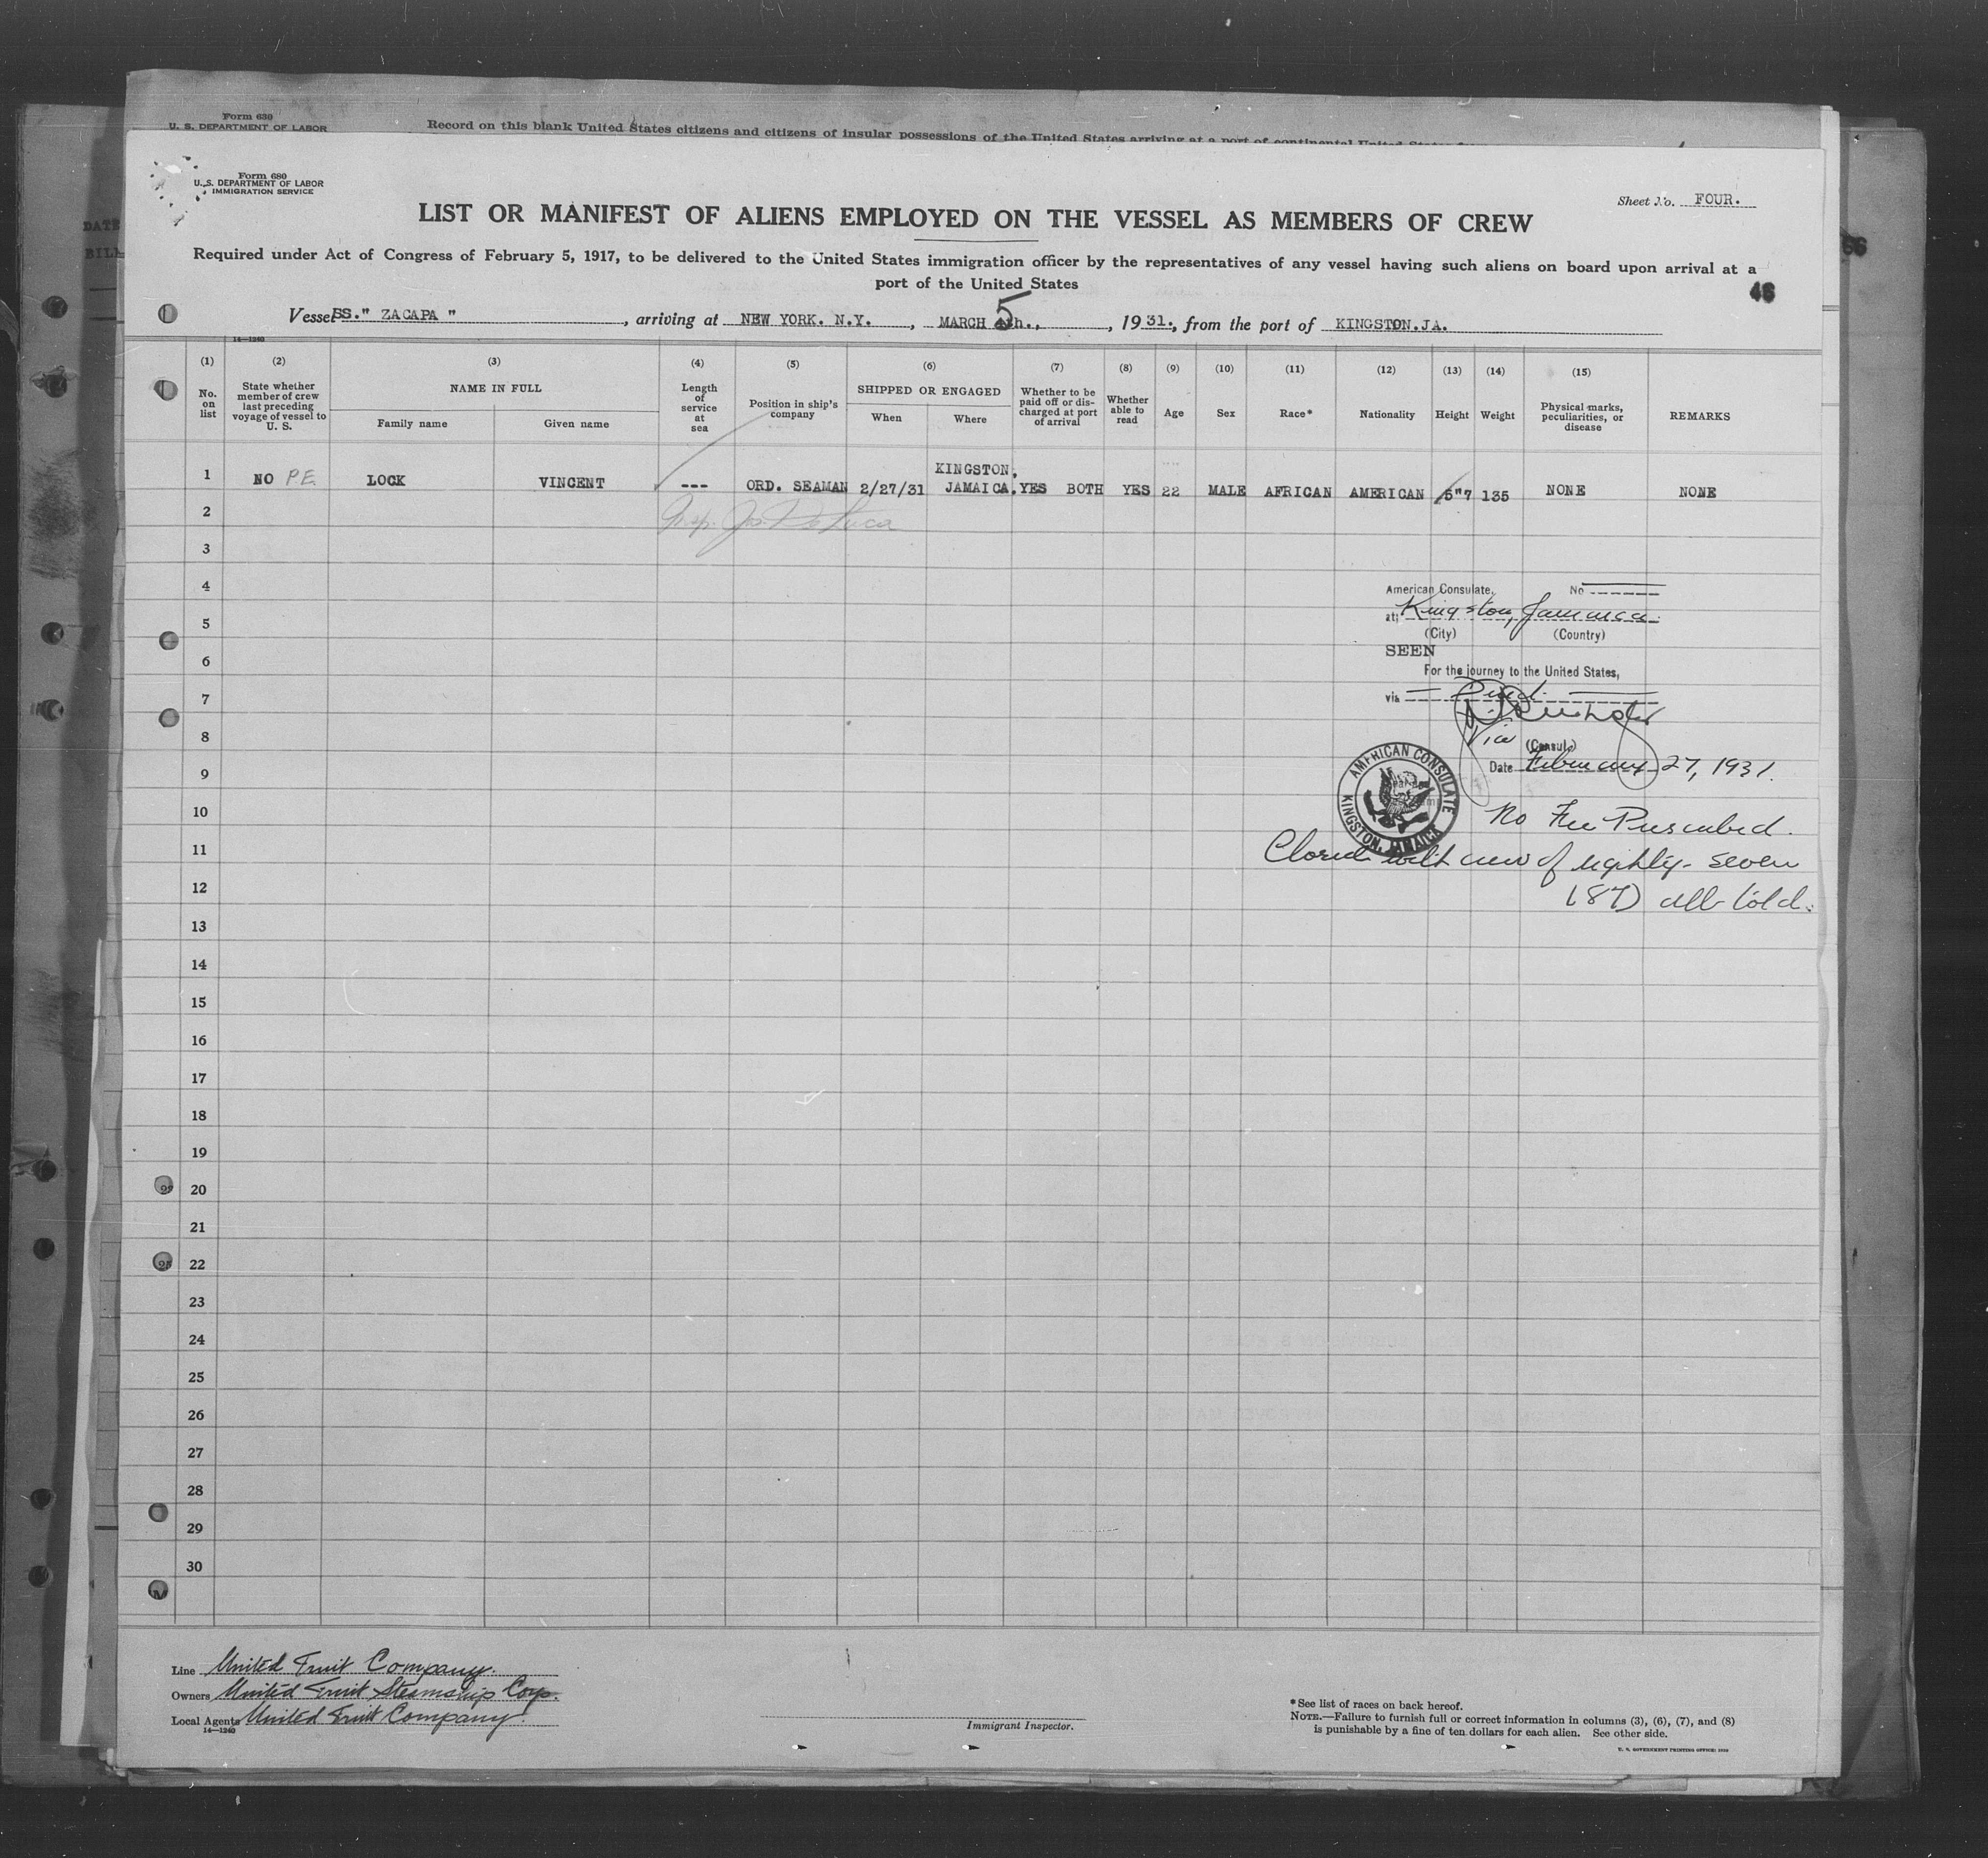 Form 630
U. S. DEPARTMENT OF LABOR
Record on this blank United States citizens and citizens of insular possessions of the United States arriving at a port of continental United States
DATE
BILL
66
Form 680
U. S. DEPARTMENT OF LABOR
IMMIGRATION SERVICE
Sheet No. FOUR.
LIST OR MANIFEST OF ALIENS EMPLOYED ON THE VESSEL AS MEMBERS OF CREW
Required under Act of Congress of February 5, 1917, to be delivered to the United States immigration officer by the representatives of any vessel having such aliens on board upon arrival at a
port of the United States
46
Vessel SS." ZACAPA ", arriving at NEW YORK. N.Y., MARCH 5th., 1931., from the port of KINGSTON.JA.
14—1240
(1) (2) (3) (4) (5) (6) (7) (8) (9) (10) (11) (12) (13) (14) (15)
No. on list
State whether member of crew last preceding voyage of vessel to U. S.
NAME IN FULL
Family name
Given name
Length of service at sea
Position in ship's company
SHIPPED OR ENGAGED
When
Where
Whether to be paid off or discharged at port of arrival
Whether able to read
Age
Sex
Race*
Nationality
Height
Weight
Physical marks, peculiarities, or disease
REMARKS
1 NO P.E. LOCK VINCENT --- ORD. SEAMAN 2/27/31 KINGSTON, JAMAICA. YES BOTH YES 22 MALE AFRICAN AMERICAN 5"7 135 NONE NONE
2 Insp. Jos. De Luca
3
4
5
6
7
8
9
10
11
12
13
14
15
16
17
18
19
20
21
22
23
24
25
26
27
28
29
30
American Consulate, No
at Kingston, Jamaica
(City) (Country)
SEEN
For the journey to the United States,
via Direct
Vice (Consul)
Date February 27, 1931.
AMERICAN CONSULATE
KINGSTON, JAMAICA
No Fee Prescribed.
Closed with crew of eighty-seven
(87) all told.
Line United Fruit Company.
Owners United Fruit Steamship Corp.
Local Agents United Fruit Company.
14—1240
Immigrant Inspector.
*See list of races on back hereof.
NOTE.—Failure to furnish full or correct information in columns (3), (6), (7), and (8)
is punishable by a fine of ten dollars for each alien. See other side.
U. S. GOVERNMENT PRINTING OFFICE: